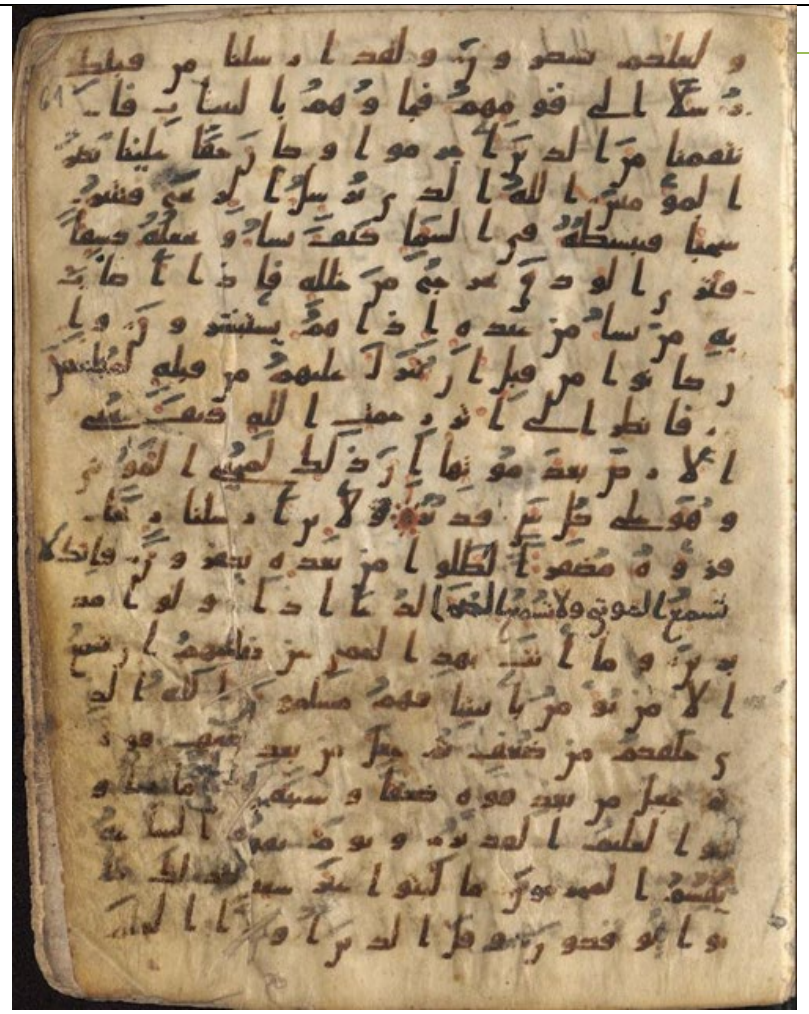 و لعلكم تشكرون و لقد ارسلنا من قبلك
61
رسلا الى قومهم فجاوهم بالبينت فا
نتقمنا من الذين اجرموا و كان حقا علينا نصر
المومنين الله الذي يرسل الريح فتثير
سحابا فيبسطه في السما كيف يشا و يجعله كسفا
فترى الودق يخرج من خلله فاذا اصاب
به من يشا من عباده اذا هم يستبشرون و ا
ن كانوا من قبل ان ينزل عليهم من قبله لمبلسين
فانظر الى اثر رحمت الله كيف يحيي
الارض بعد موتها ان ذلك لمحيي الموتى
و هو على كل شي قدير و لين ارسلنا ريحا
فراوه مصفرا لظلوا من بعده يكفرون فانك لا
تسمع الموتى ولا تسمع الصم الدعا اذا ولوا مد
برين و ما انت بهد العمي عن ضللتهم ان تسمع
الا من يومن بايتنا فهم مسلمون الله الذ
ي خلقكم من ضعف ثم جعل من بعد ضعف قو
ة ثم جعل من بعد قوة ضعفا و شيبة يخلق ما يشا و
هو العليم القدير و يوم تقوم الساعة
يقسم المجرمون ما لبثوا غير ساعة كذلك كا
نوا يوفكون و قال الذين اوتوا العلم